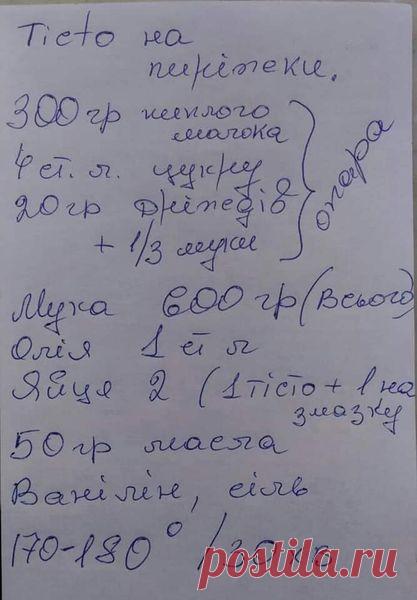 Тісто на
пиріжки.
300 гр теплого
молока
4 ст. л. цукру
20 гр дріжджів
+ 1/3 муки
опара
Мука 600 гр (всього)
Олія 1 ст л
Яйця 2 (1 тісто + 1 на
змазку
50 гр масла
Ванілін, сіль
170-180° / 30 хв
postila.ru